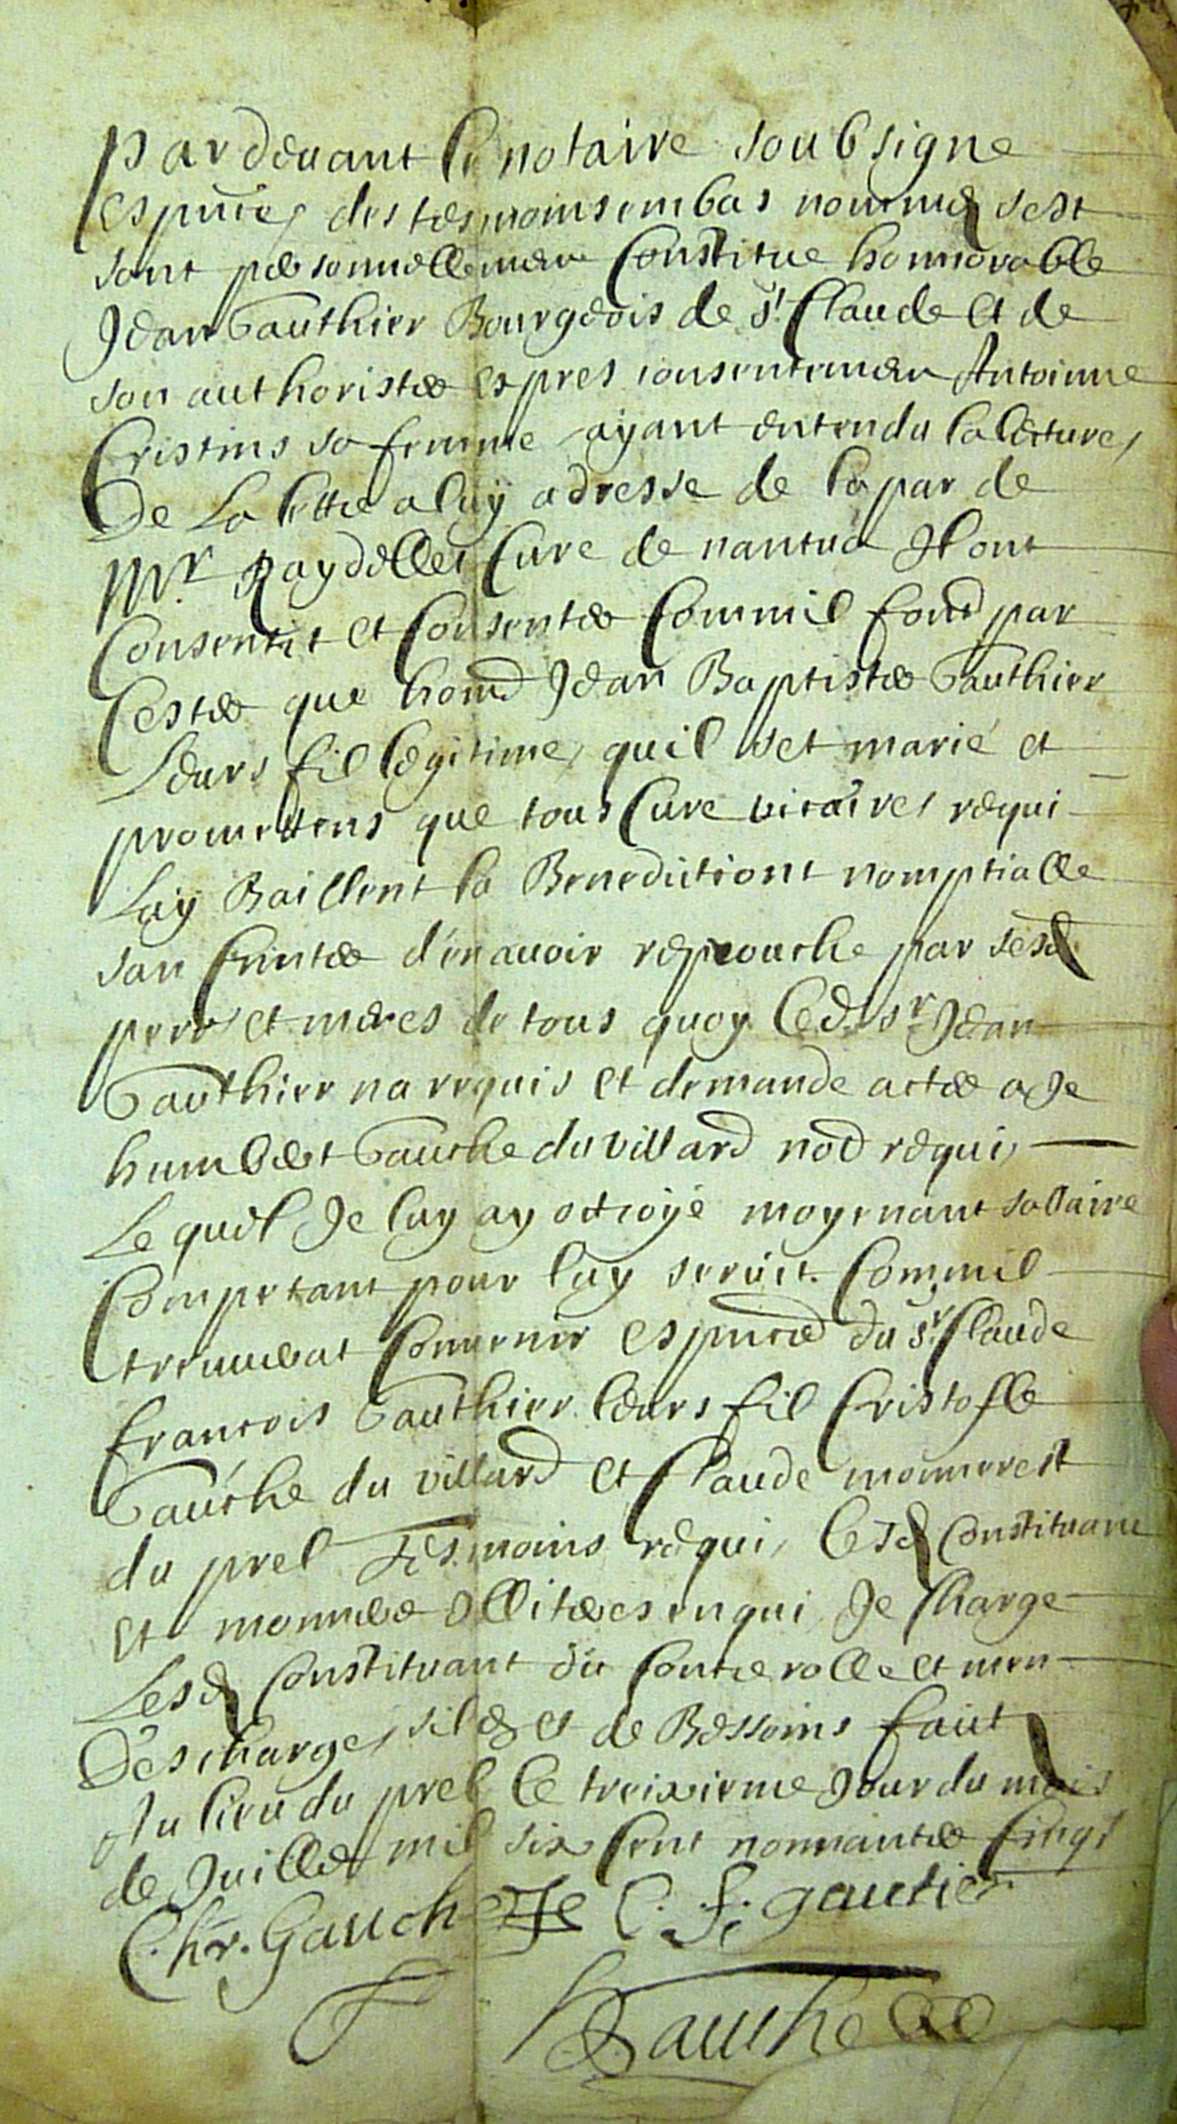 Pardevant le notaire soubsigne
es pnce des tesmoins embas nommes sest
sont personnellement Constitue honnorable
Jean Gauthier Bourgeois de St Claude et de
son authoristee expres consentement Antoinne
Cristins sa femme ayant entendu la lecture
De La lettre a luy adresse de la par de
Mr. Raydellet Cure de nantua Jl ont
Consentit et Consentee Commil font par
Cestee que hond Jean Baptistee Gauthier
Leurs fil legitime quil set marié et
promettens que tous Cure vicaire requi
Luy Baillent la Benedictiont nomptialle
san Crintee d'en avoir reprouche par sesd
pere et meres de tous quoy Led. sr Jean
Gauthier na requis et demande actee a Je
humbert Gauche du villard not requi
Le quel Je luy ay octroye moyenant sallaire
Competant pour luy servir Commil
trouverat Convenir es pnce du sr Claude
francois Gauthier leurs fil Cristofle
Gauche du villard et Claude monnerest
du prel Tesmoins requi, Lesd Constituant
et monneret illiterees enqui Je Charge
Lesd Constituant du Contrerolle et men
Descharge sil et de Bessoins faict
Au lieu du prel le treixieme Jour du mois
de Juillet mil six Cent nonnantee Cinqt
Chr. Gauche C. f. gautier
Gauche